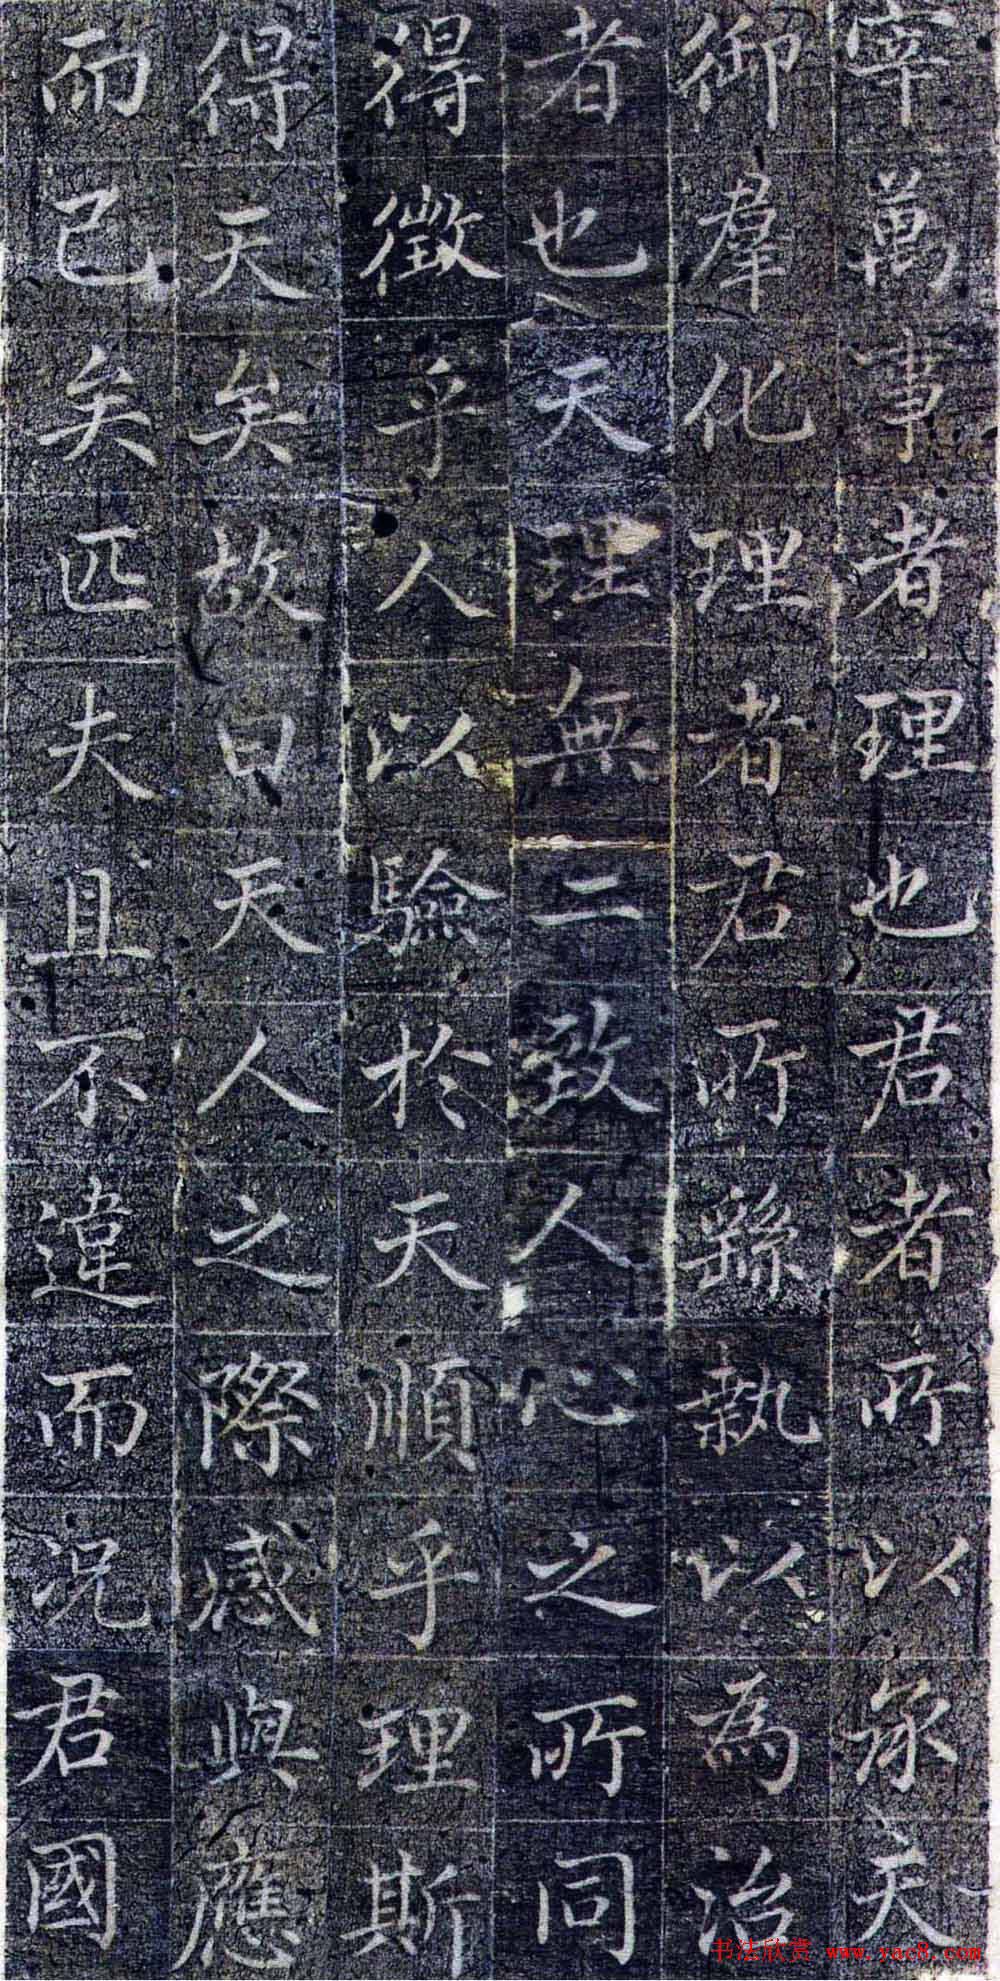 宰萬事者理也君者所以承天
御羣化理者君所繇執以為治
者也天理無二致人心之所同
得徵乎人以驗於天順乎理斯
得天矣故曰天人之際感與應
而已矣匹夫且不違而況君國
书法欣赏 www.yac8.com